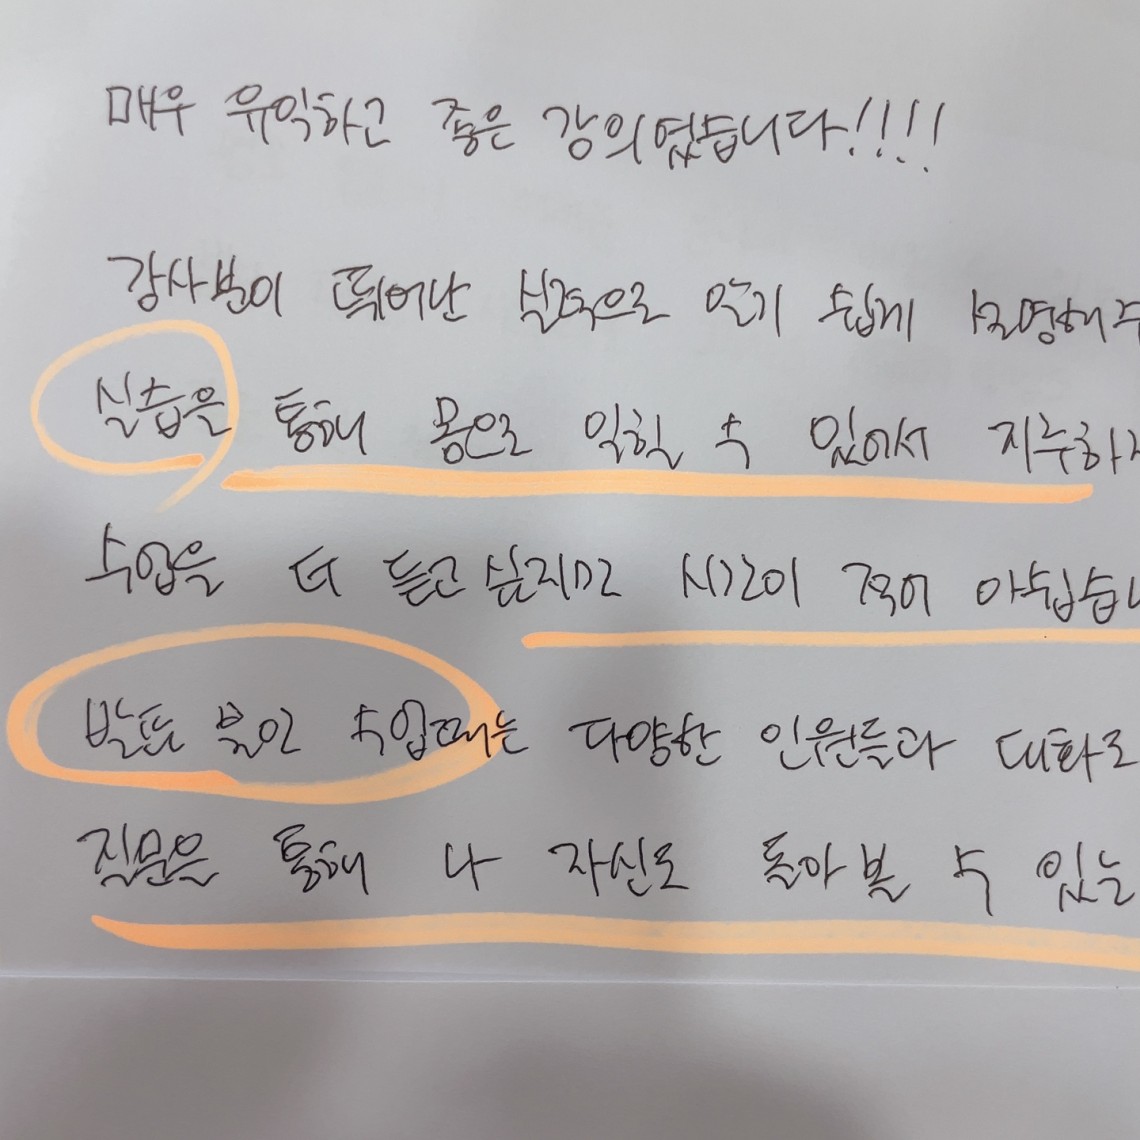 매우 유익하고 좋은 강의였습니다!!!!
강사분이 뛰어난 실력으로 알기 쉽게 설명해주
실습을 통해 몸으로 익힐 수 있어서 지루하지
수업을 더 듣고싶지만 시간이 적어 아쉽습니
발표 불안 수업때는 다양한 인원들과 대화로
질문을 통해 나 자신도 돌아볼 수 있는